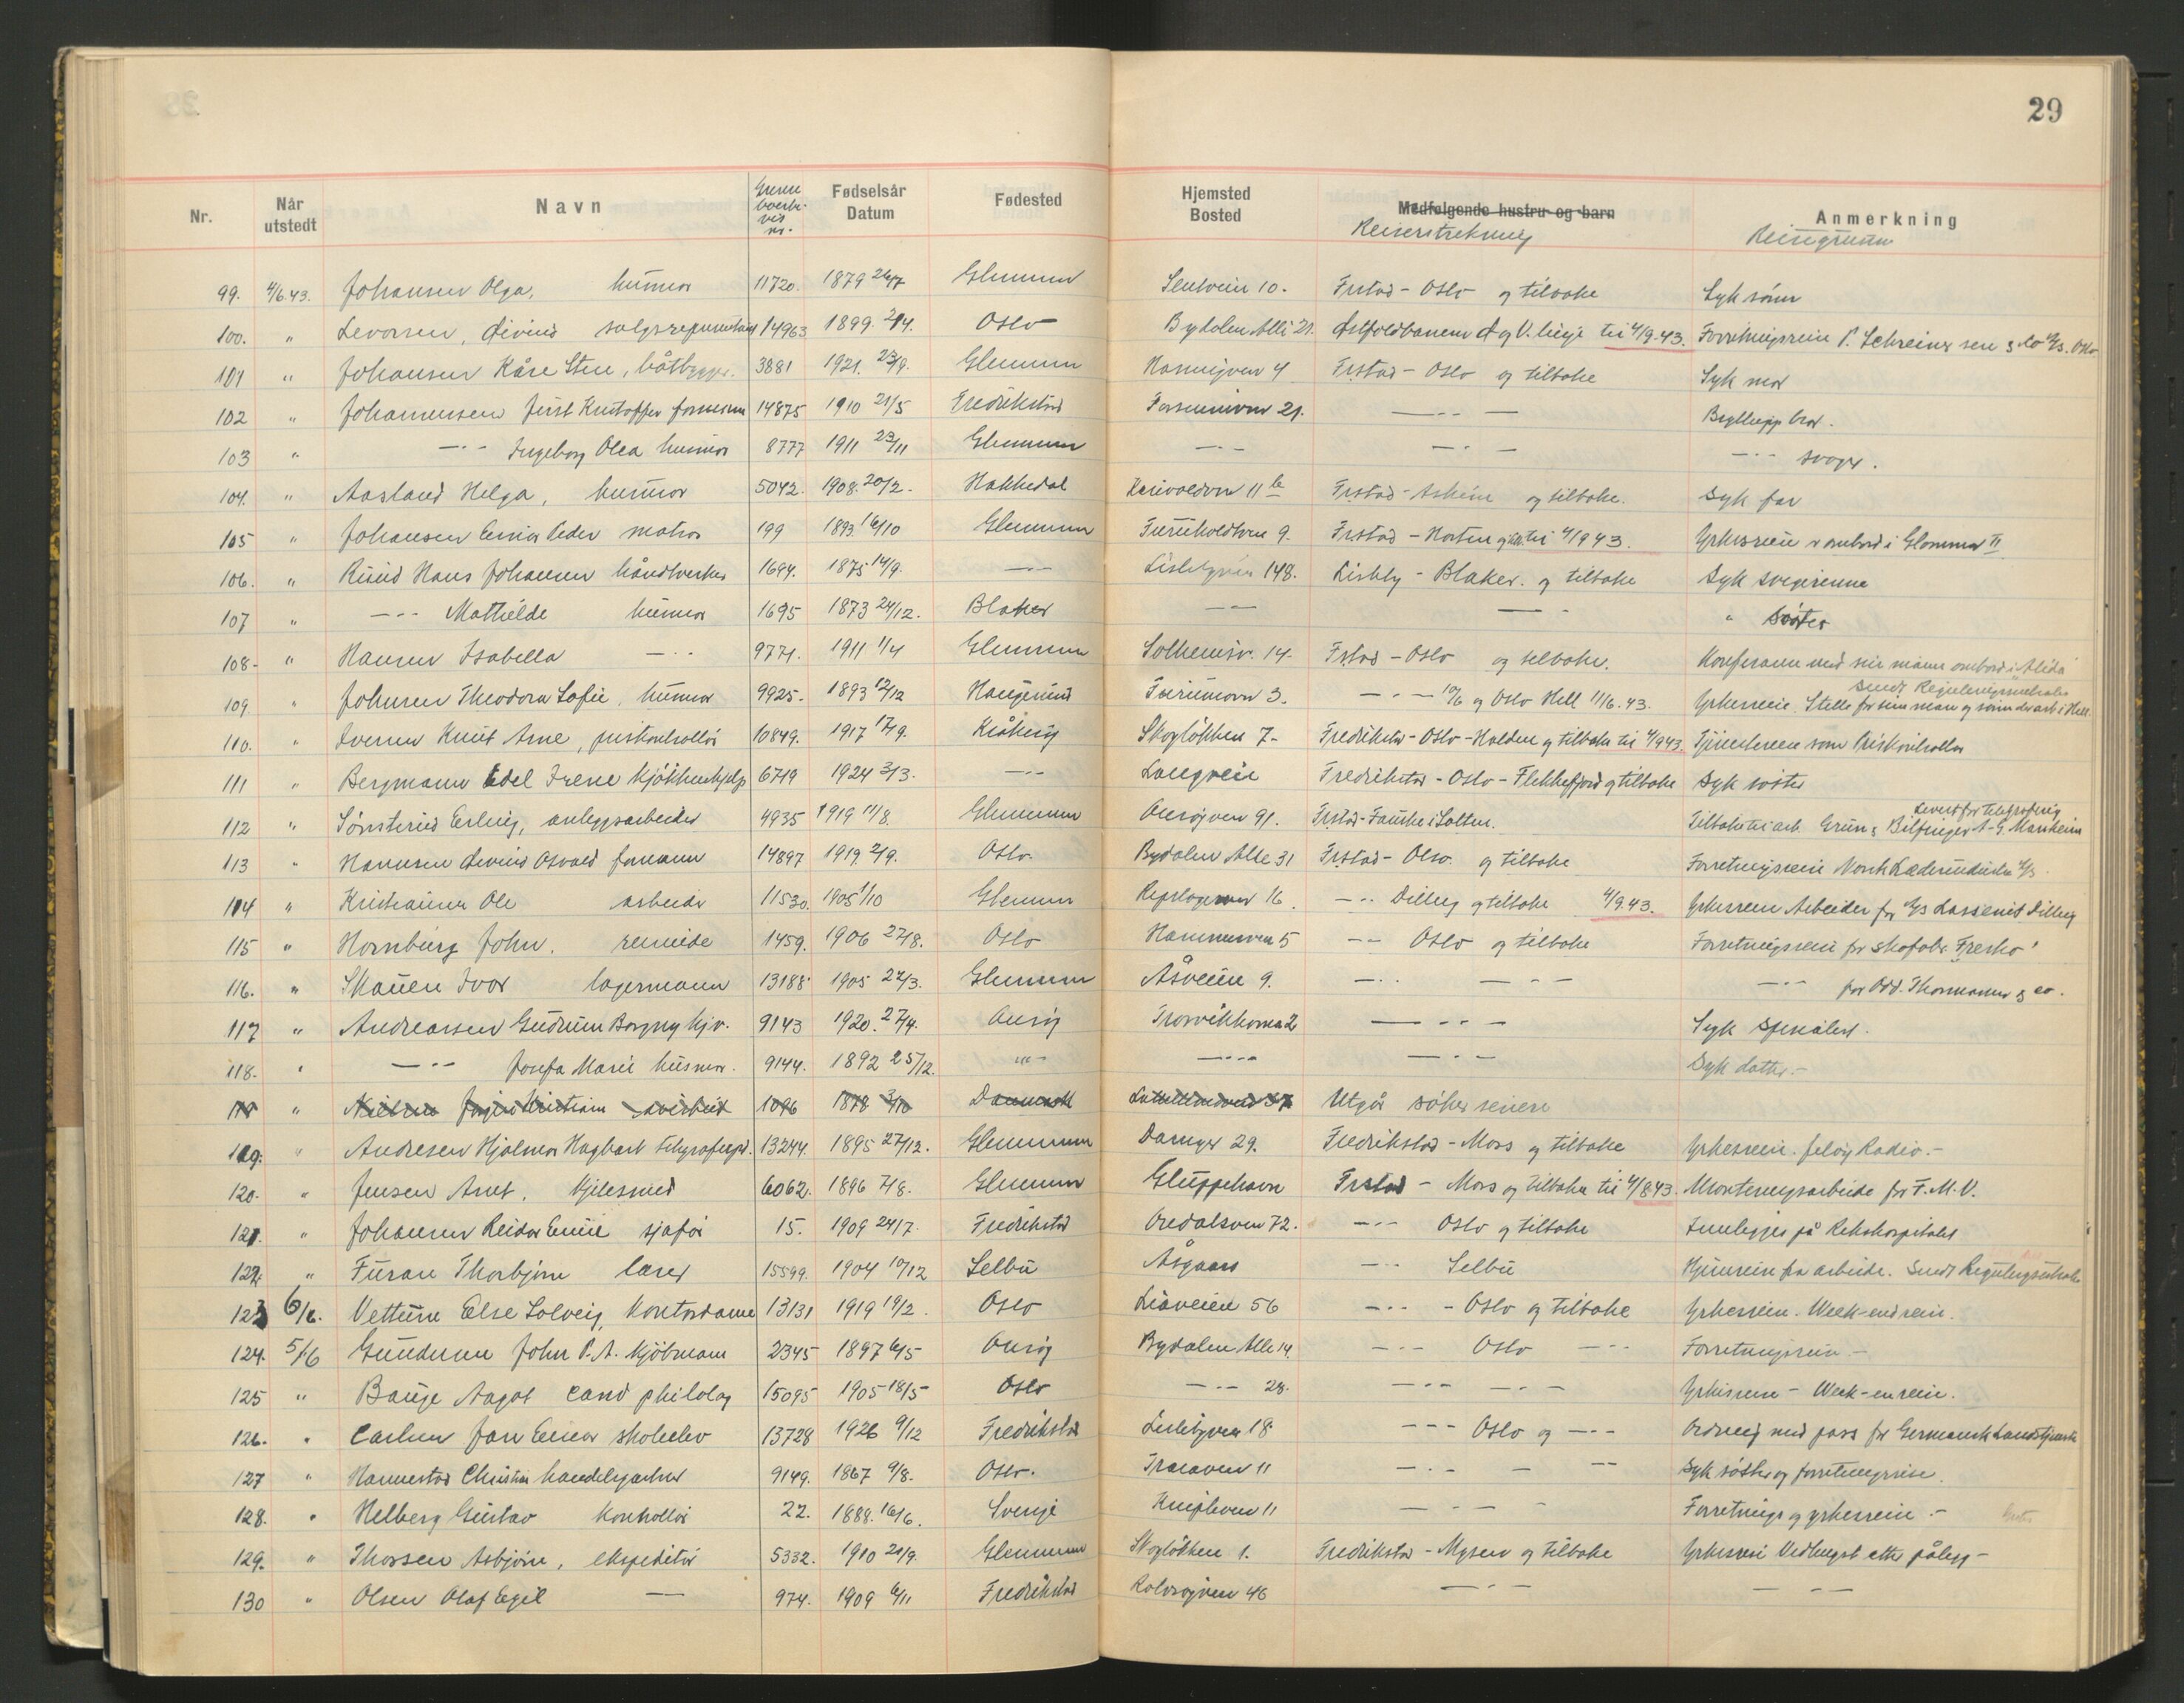 29
Nr. Når utstedt Navn Grense boerbevis nr. Fødselsår Datum Fødested Hjemsted Bosted Medfølgende hustru og barn Reisestrekning Anmerkning Reisegrunn
99. 4/6.43. Johansen Olga, husmor 11720. 1879 26/7 Glemmen 10. Frstad - Oslo og tilbake Syk sønn
100. " Levorsen, Eivind salgsrepresentant 14963 1899. Oslo Bydalen Alle 21. Østfoldbanen Ø og V. linje til 4/9-43. Forretningsreise P. Schreiner sen & Co A/S. Oslo
101 " Johansen Kåre Sten, båtbygger. 3881 1921. 23/9. Glemmen 4 Frstad - Oslo og tilbake Syk mor
102 " Johannessen Kristoffer formann 14875 1910 21/5 Fredrikstad 21. —"— Bryllupp bror.
103 " —"— Ingeborg Olea husmor 8777 1911 23/11 Glemmen —"— —"— —"— svoger.
104. " Aasland Helga, husmor 5042. 1908. 20/2. Hakkedal 11 b Frstad - Askim og tilbake. Syk far
105 " Johansen Einar Peder matros 199 1893. 16/10 Glemmen Furuholdtvn 9. Frstad - Horten og tilb. til 4/9 43. Yrkesreise ombord i Glommen II
106. " Hans Johansen håndverker 1694. 1875 14/9. —"— Lislebyvn 148. Lisleby - Blaker. og tilbake Syk svigerinne
107 " —"— Mathilde husmor 1695 1873 24/12. Blaker —"— —"— " søster
108- " Hansen Isabella —"— 9771. 1911 1/4 Glemmen Solheimsv. 14- Fstad - Oslo og tilbake. Konferanse med sin mann ombord i Alida
109 " Johnsen Theodora Sofie, husmor 9925- 1893 12/12 Haugesund Furumovn 3. —"— 10/6 og Oslo Hell 11/6.43. Yrkesreise. Stelle for sin man og sønn der arb i Hell. Sendt Reguleringssentralen
110. " Iversen Knut Arne, priskontrollør 10849. 1917 17/9. Kråkerøy Skogløkken 7- Fredrikstad - Oslo - Halden og tilbake til 4/9 43. Tjenestereise som Priskontrollør
111 " Bergmann Edel Irene kjøkkenhjelp 6719 1924 3/3. —"— Langveien Fredrikstad - Oslo - Flekkefjord og tilbake Syk søster
112 " Sønsterud Erling, anleggsarbeider 4935 1919 11/8. Glemmen Onsøyven 91. Frstad - Fauske i Salten. Tilbake til arb. Grün & Bilfinger A-G. Manheim
113 " Hansen Eivind Osvald formann 14897 1919. 2/9. Oslo. Bydalen Alle 31 Frstad - Olso. og tilbake Forretningsreise Norsk Læderindustri A/S
114 " Kristiansen Ole arbeider 11530. 1905 1/10 Glemmen 16. —"— Dilling og tilbake 4/9.43. Yrkesreise Arbeider for A/S Lassenit Dilling
115 " Hornburg John. reisende 1459. 1906 27/8. Oslo 5 —"— Oslo og tilbake Forretningsreise for skofabr. Fresko'
116. " Skauen Ivar lagermann 13188 1905 27/3. Glemmen Åsveien 9. —"— —"— —"— for Odd. Thormann & co.
117 " Andreassen Gudrun Borgny hjv. 9143 1920. 27/4. Onsøy 2 —"— Syk
118. " —"— Josefa Marie husmor. 9144. 1892 25/12. —"— —"— —"— Syk datter.-
" Nielsen Kristian 1096 1878 3/10 Danmark 37 Utgår søkes senere
119. " Andresen Hjalmar Hagbart telegrafinsp. 13244. 1895 27/12. Glemmen 29. Fredrikstad - Moss og tilbake Yrkesreise. Jeløy Radio.-
120. " Jensen Arnt. kjelesmed 6062. 1896 7/8. Glemmen Gluppehavn Frstad - Moss og tilbake til 4/8 43 Monteringsarbeide for F.M.V.
121. " Johansen Reidar Emil sjafør 15. 1909 24/7. Fredrikstad 72. —"— Oslo og tilbake Innlegges på Rikshospitalet
122. " Furan Thorbjørn lærer 15599. 1904 10/12 Selbu Åsgaard —"— Selbu Hjemreise fra arbeide. Sendt Reguleringssentralen
123 6/6. Vettum Else Solveig, kontordame 13131 1919 19/2. Oslo Liaveien 56 —"— - Oslo og tilbake Yrkesreise. Week-endreise.
124. 5/6 Gundersen John P.A. kjøbmann 2345 1897 6/5 Onsøy Bydalen Alle 14. —"— Oslo —"— Forretningsreise.-
125 " Bauge Aagot cand philolog 15095 1905 18/5 Oslo —"— 28. —"— —"— Yrkesreise - Week-enreise.
126. " Carlsen Jan Einar skoleelev 13728 1926 9/12 Fredrikstad Lislebyven 18 —"— Oslo og —"— Ordning med pass for Germansk Landstjeneste
127 " Hannestad Christian handelsgartner 9149. 1867 9/8. Oslo. Traraven 11 —"— — —"— Syk søster og forretningsreise.
128. " Helberg Gustav kontrollør 22. 1888. 16/6. Sverige 11 —"— Forretnings og yrkesreise.-
129. " Thorsen Asbjørn, ekspeditør 5332. 1910 21/9. Glemmen Skogløkken 1. Fredrikstad - Mysen og tilbake Yrkesreise Vedhugst etter pålegg-
130 " Olsen Olaf Egil — 974. 1909 6/11 Fredrikstad Rolvsøyven 46 —"— —"—